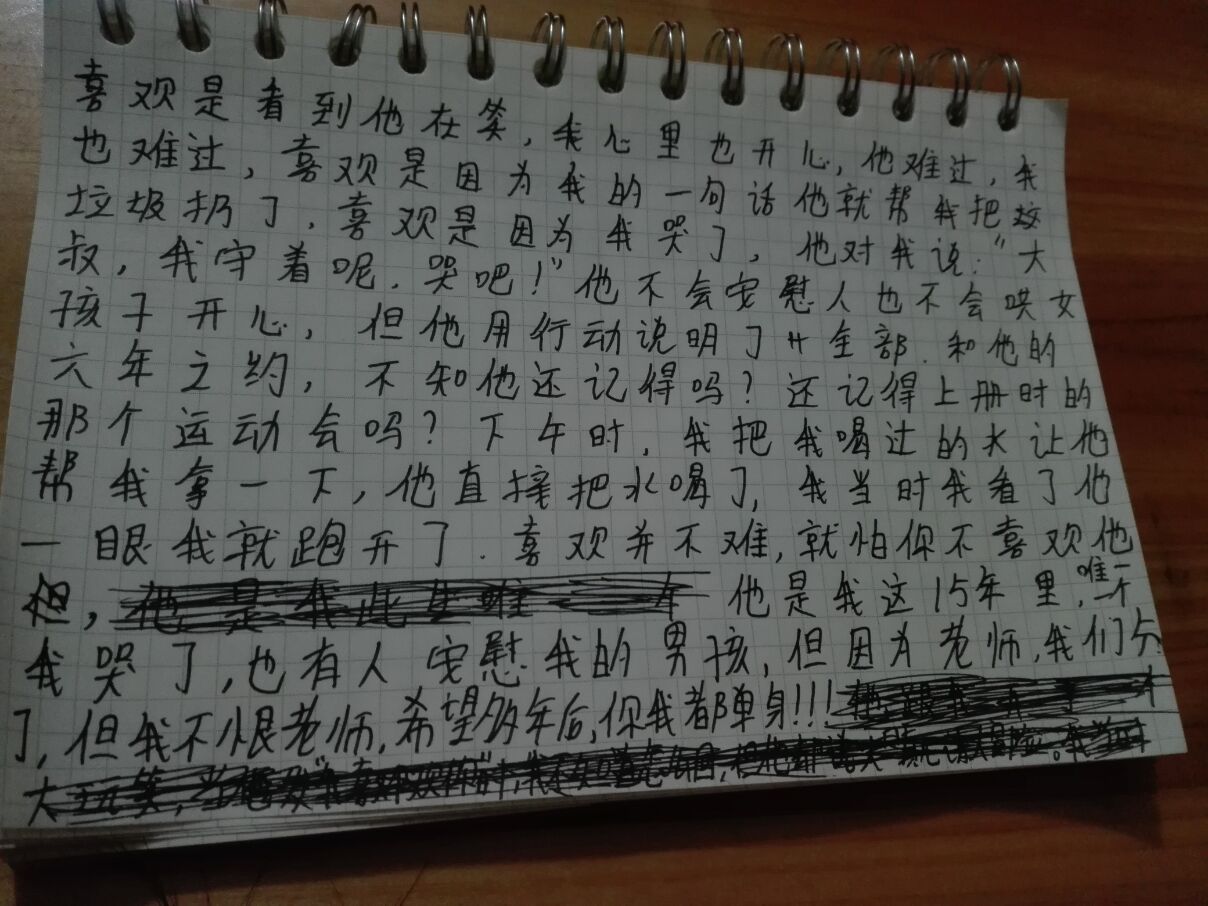 喜欢是看到他在笑,我心里也开心,他难过,我
也难过,喜欢是因为我的一句话他就帮我把
垃圾扔了.喜欢是因为我哭了,他对我说:"大
叔,我守着呢.哭吧!"他不会安慰人也不会哄女
孩子开心,但他用行动说明了 全部.和他的
六年之约,不知他还记得吗?还记得上册时的
那个运动会吗?下午时,我把我喝过的水让他
帮我拿一下,他直接把水喝了,我当时我看了他
一眼我就跑开了.喜欢并不难,就怕你不喜欢他
他是我这15年里,唯一个
我哭了,也有人安慰我的男孩,但因为老师,我们分
了,但我不恨老师,希望多年后,你我都单身!!!